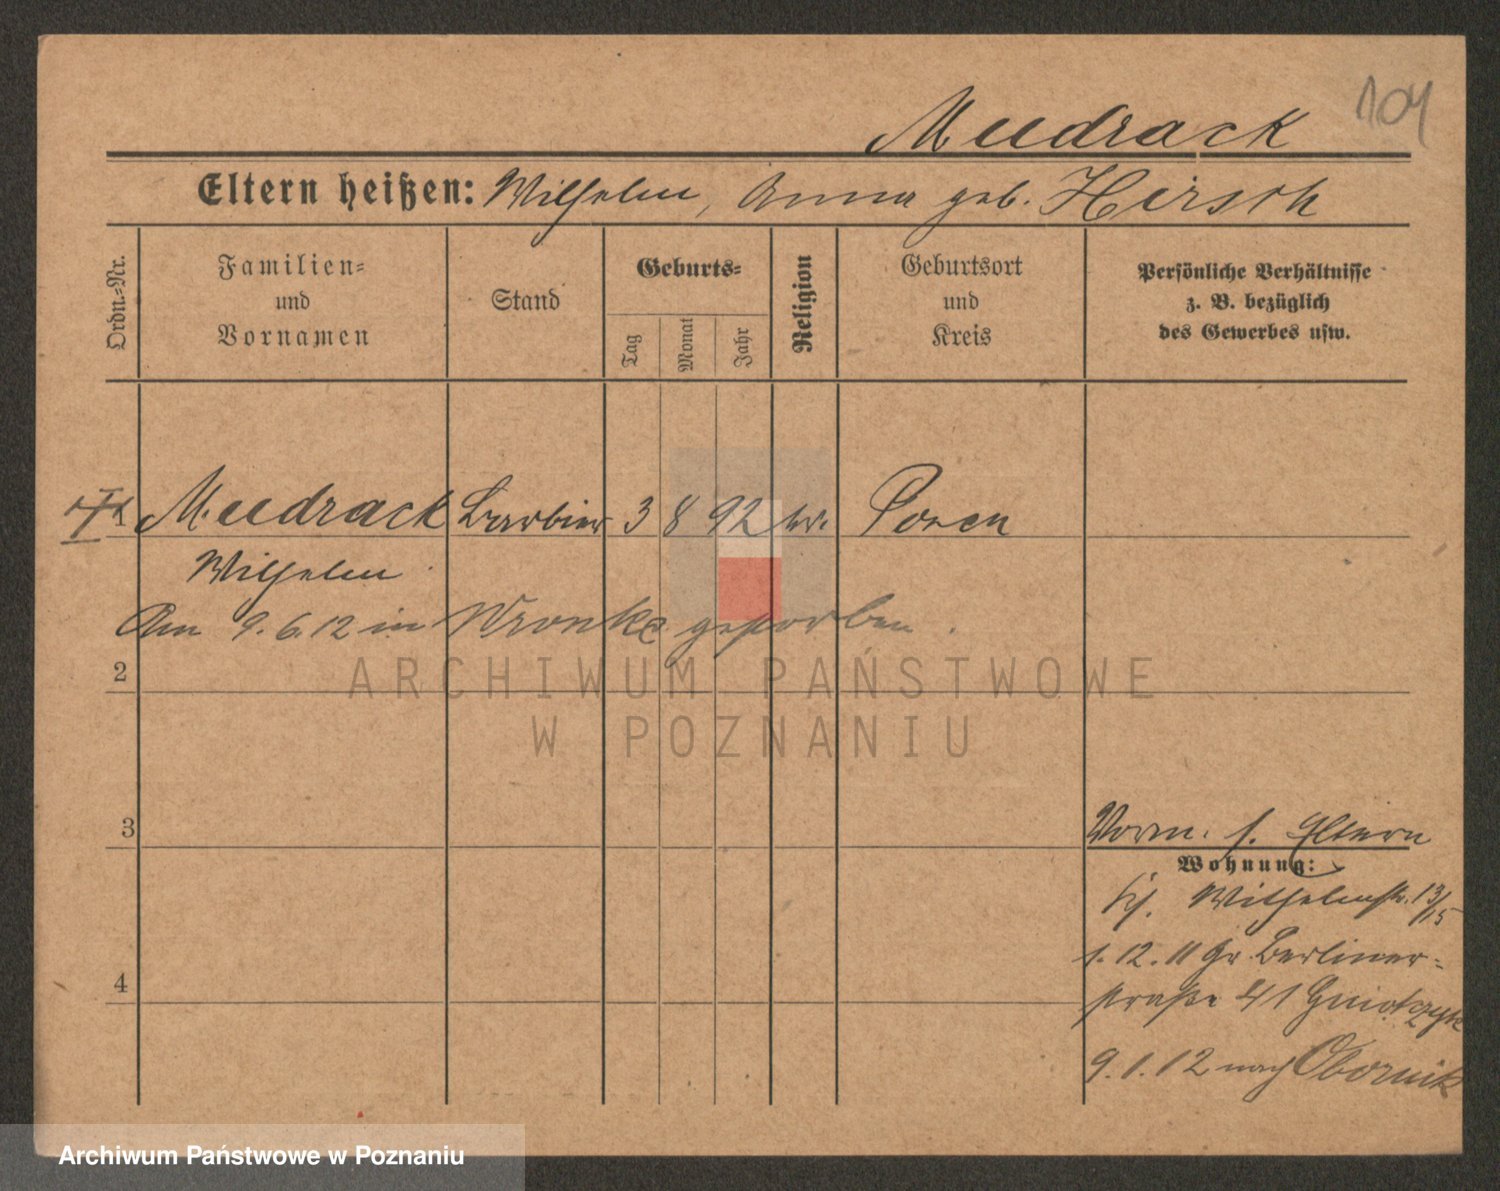 104
Mudrack
Eltern heißen: Wilhelm, Anna geb. Hirsch
Ordn.-Nr.
Familien-
und
Vornamen
Stand
Geburts-
Tag
Monat
Jahr
Religion
Geburtsort
und
Kreis
Persönliche Verhältnisse
z. B. bezüglich
des Gewerbes usw.
1 Mudrack Barbier 3 8 92 Posen
Wilhelm
Am 9.6.12 in Wronke gestorben.
2
ARCHIWUM PAŃSTWOWE
W POZNANIU
3
Vorm. s. Eltern
Wohnung:
Wilhelmstr. 13/15
1.12.11 Gr. Berliner-
straße 41
4
9.1.12 nach Obornik
Archiwum Państwowe w Poznaniu